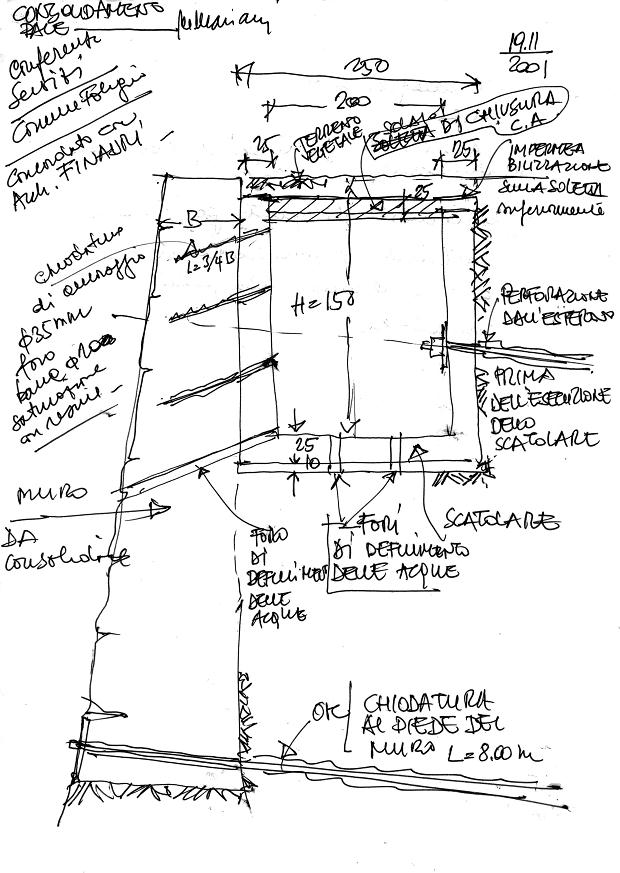 CONSOLIDAMENTO
PALE
Conferenza
Servizi
Comune Foligno
Concordato con,
Arch. FINAURI
19.11
2001
250
200
25
TERRENO
VEGETALE
SOLAIO DI CHIUSURA
C.A
25
IMPERMEA
BILIZZAZIONE
SULLA SOLETTA
inferiormente
25
B
L=3/4 B
H=150
chiodatura
di ancoraggio
φ35mm
foro
saturazione
con resine
PERFORAZIONE
DALL'ESTERNO
PRIMA
DELL'ESECUZIONE
DELLO
SCATOLARE
25
10
MURO
DA
consolidare
FORO
DI
DEFLUIMENTO
DELLE
ACQUE
FORI
DI DEFLUIMENTO
DELLE ACQUE
SCATOLARE
OK
CHIODATURA
AL PIEDE DEL
MURO L=8.00 m